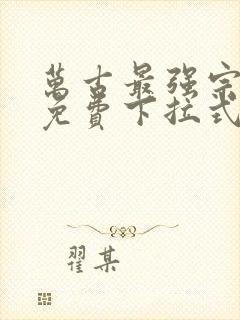 萬古最强宗
免費下拉式
翟某